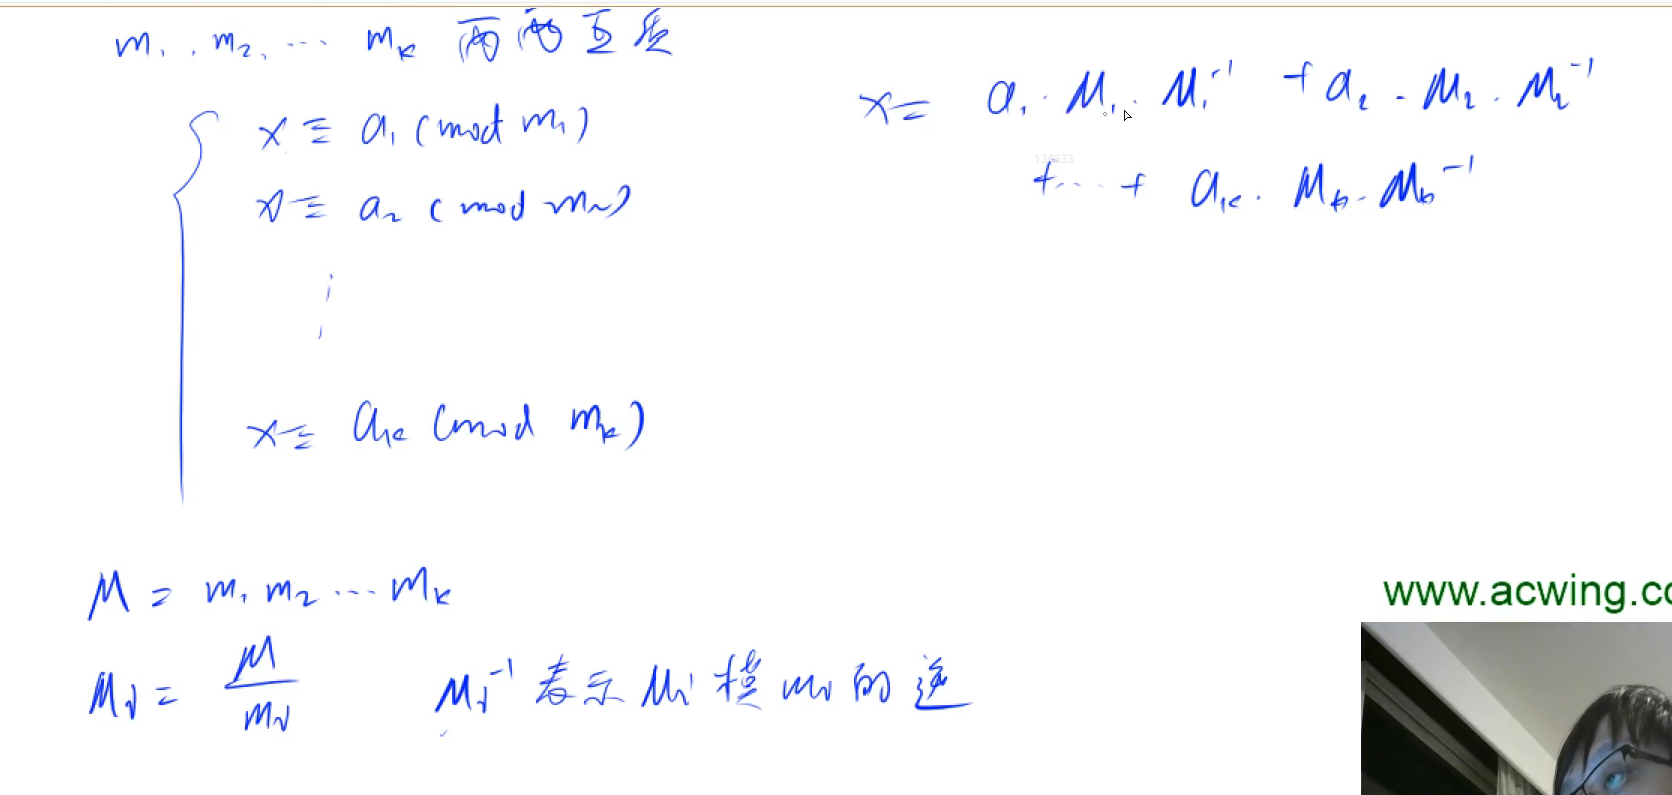 m₁, m₂, ⋯ mₖ 两两互质
x ≡ a₁ (mod m₁)
x ≡ a₂ (mod m₂)
⋮
x ≡ aₖ (mod mₖ)
x = a₁ · M₁ · M₁⁻¹ + a₂ · M₂ · M₂⁻¹
+ ⋯ + aₖ · Mₖ · Mₖ⁻¹
134633
M = m₁ m₂ ⋯ mₖ
Mᵢ = M / mᵢ
Mᵢ⁻¹ 表示 Mᵢ 模 mᵢ 的逆
www.acwing.co